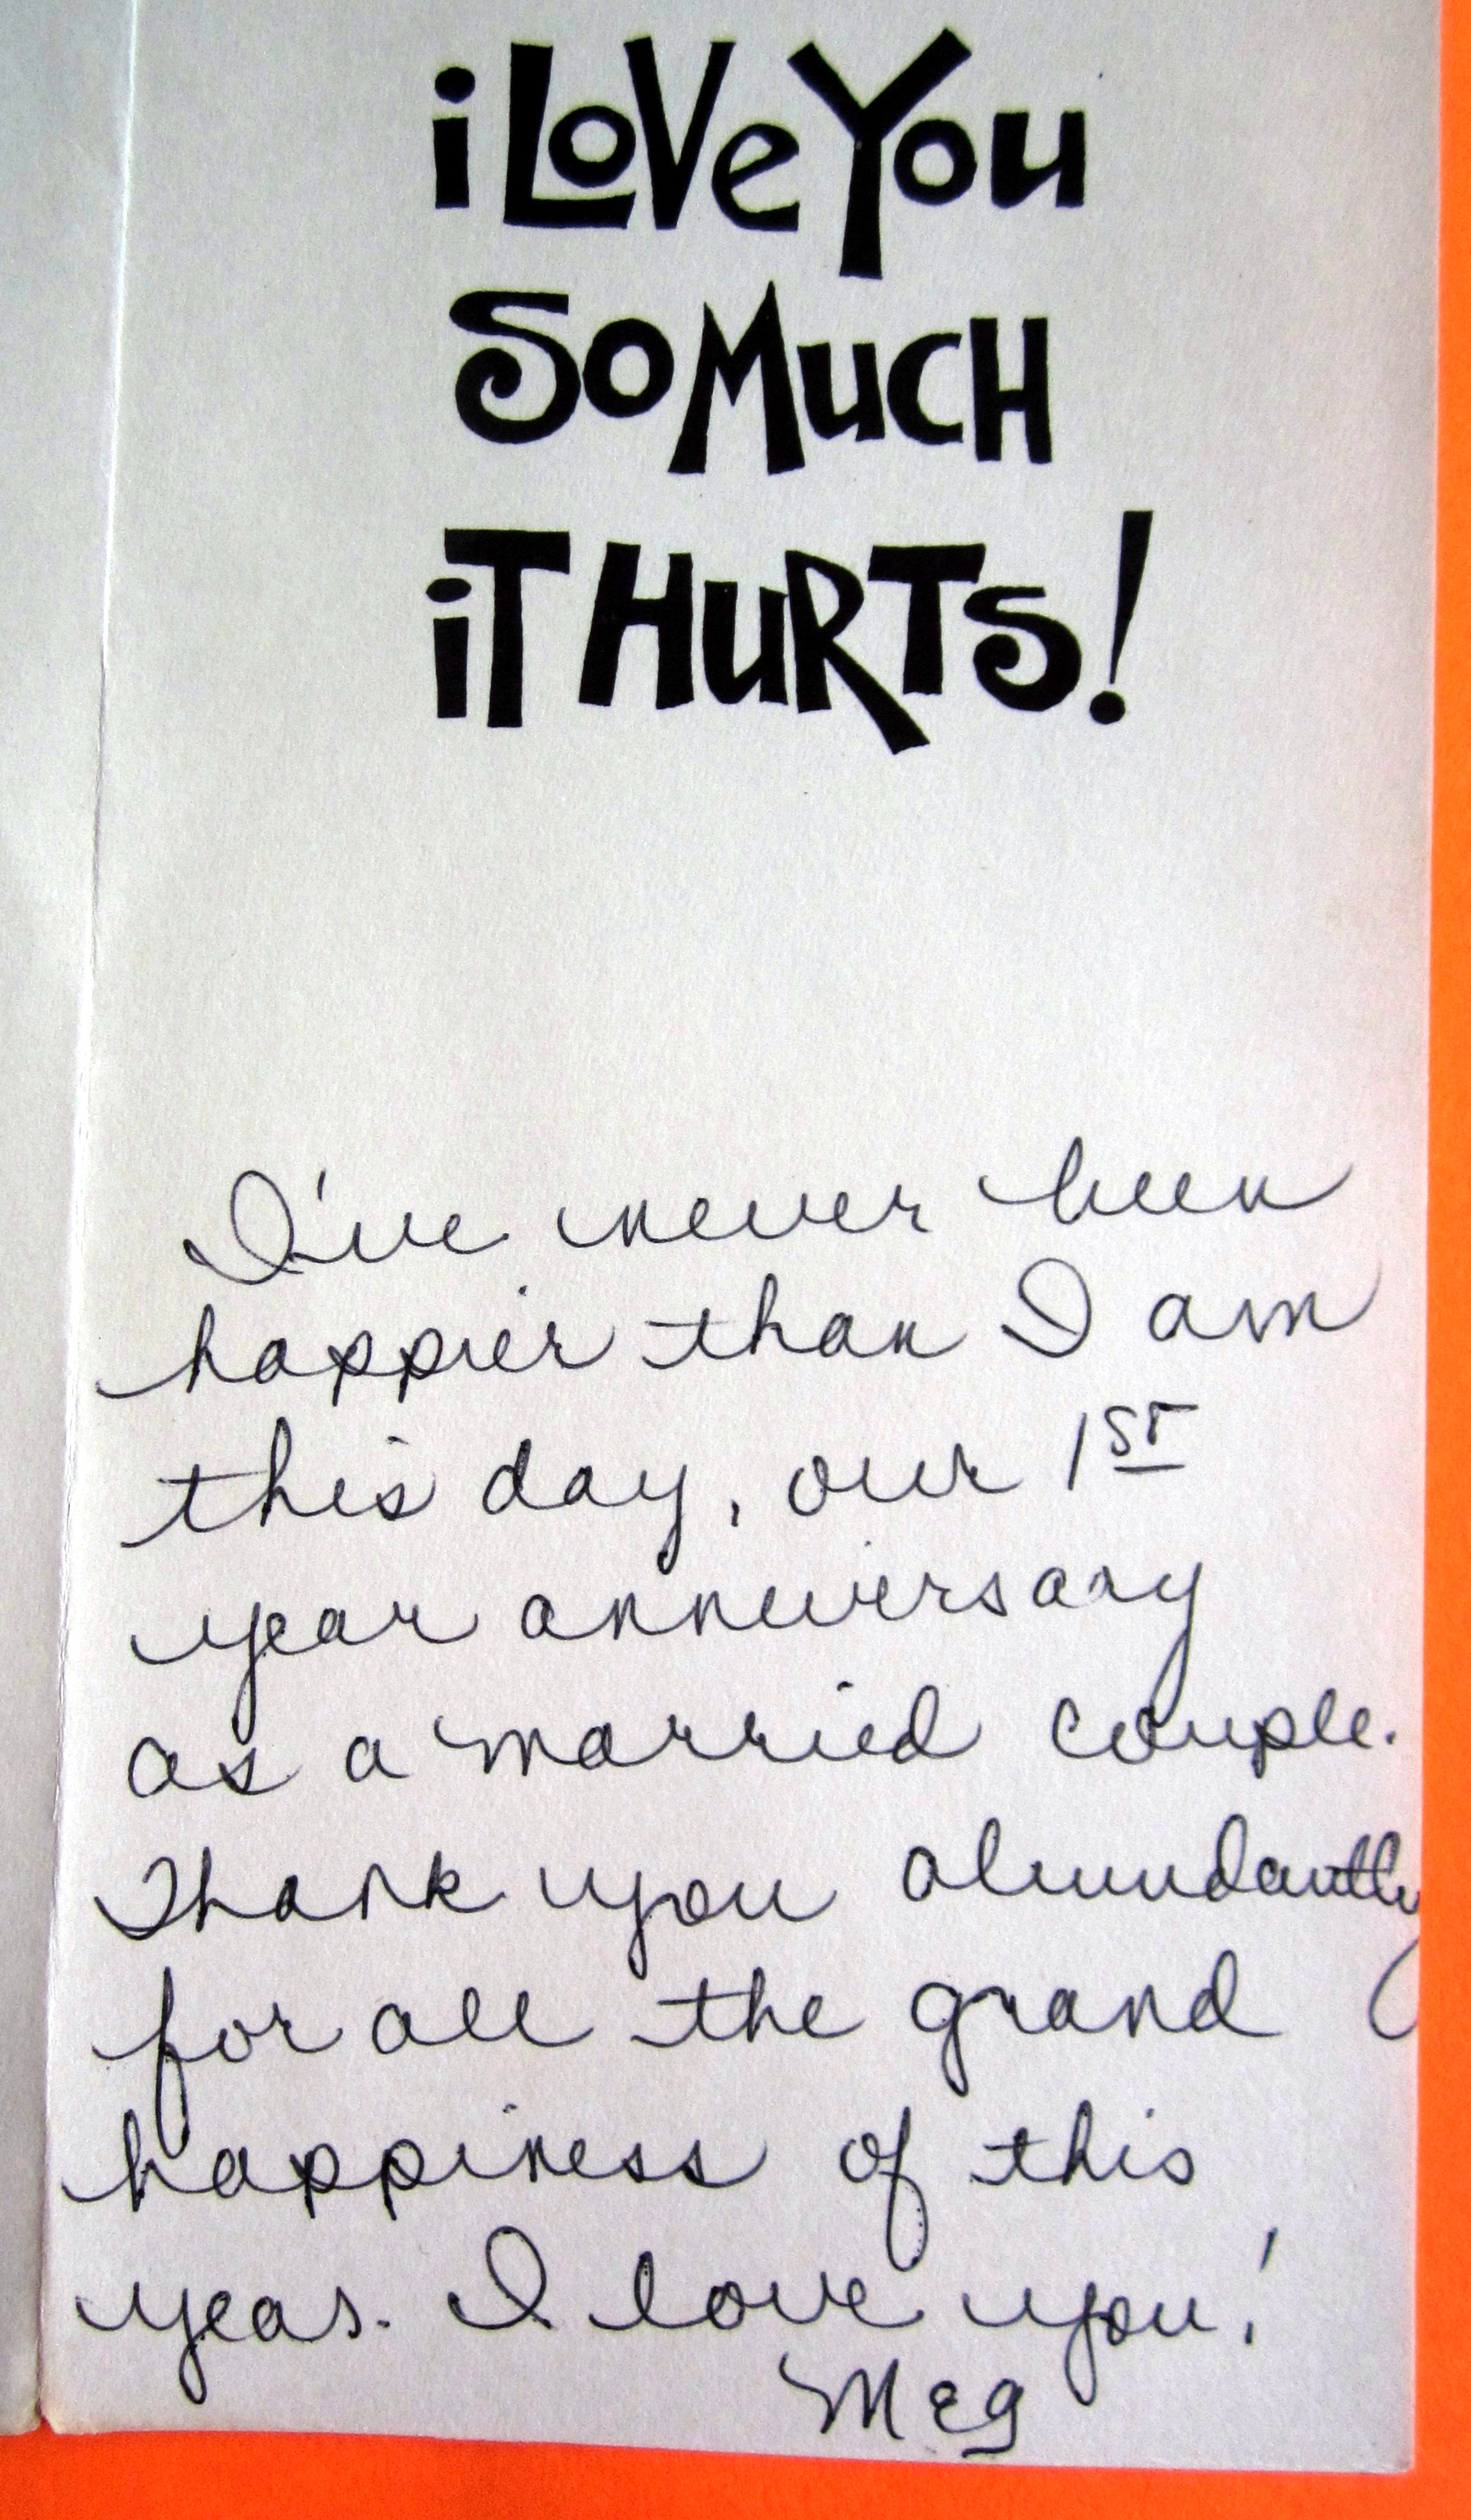 i LoVe You
So MucH
iT HuRTS!
I've never been
happier than I am
this day, our 1ST
year anniversary
as a married couple.
Thank you abundantly
for all the grand
happiness of this
year. I love you!
Meg